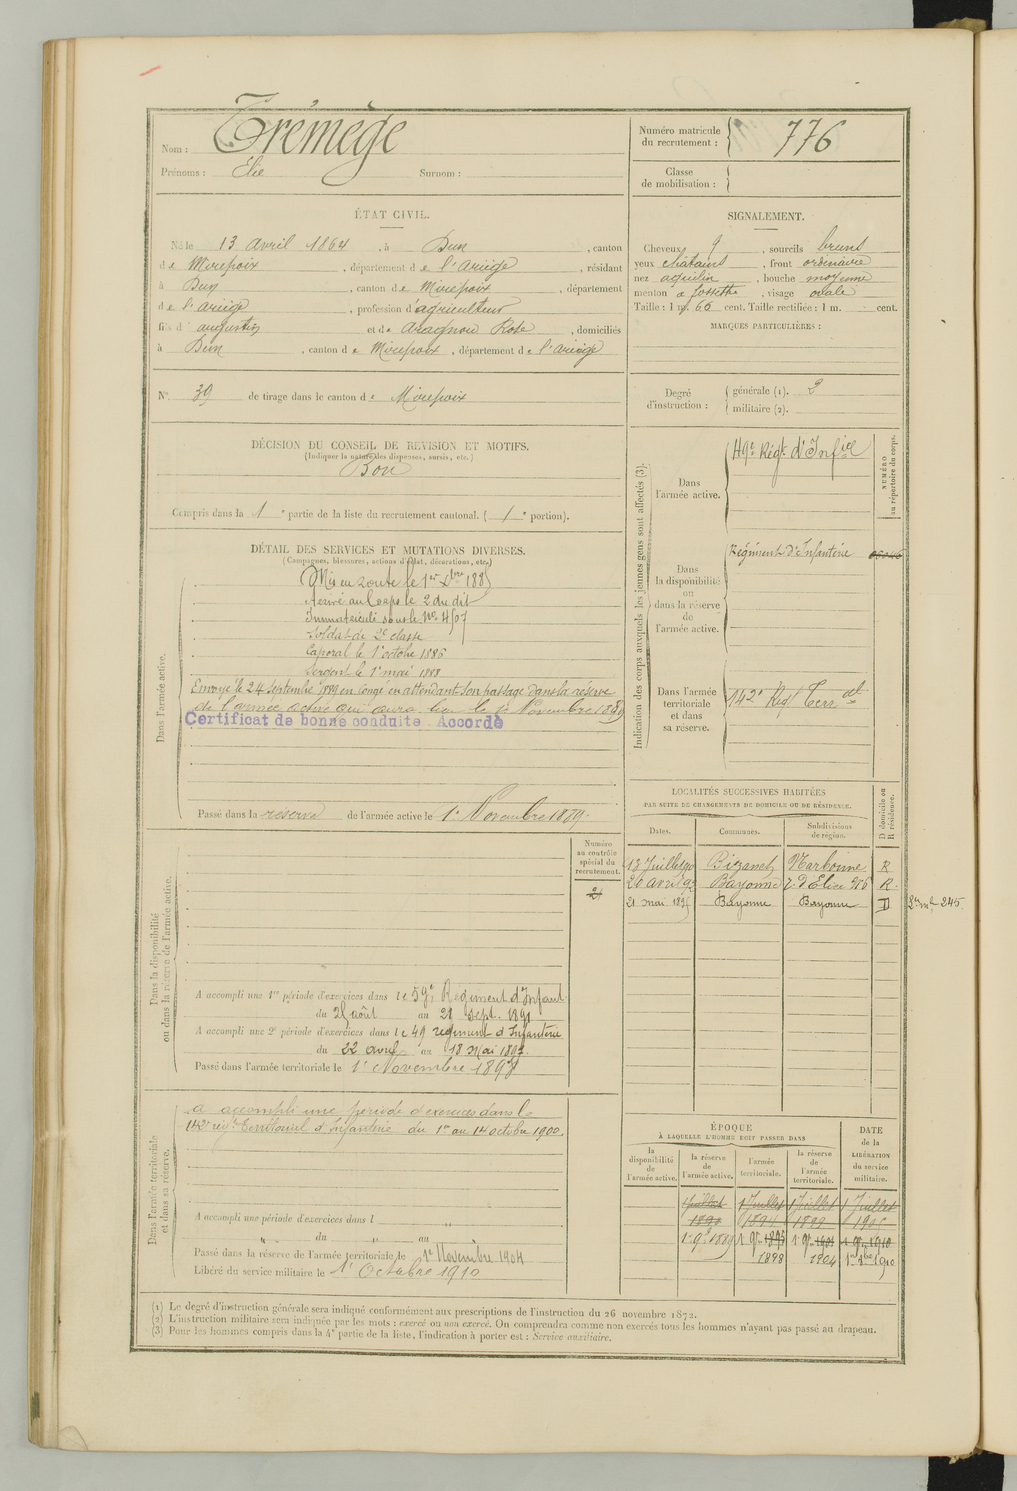 Nom : Trémège
Prénoms : Elie Surnom :
Numéro matricule
du recrutement : 776
Classe
de mobilisation :
ÉTAT CIVIL.
Né le 13 avril 1864, à Dun, canton
de Mirepoix, département de l'Ariège, résidant
à Dun, canton de Mirepoix, département
de l'ariège, profession d'agriculteur
fils d'augustin et de aragnou Rose, domiciliés
à Dun, canton de Mirepoix, département de l'ariège
SIGNALEMENT.
Cheveux, sourcils bruns
yeux chatains, front ordinaire
nez aquilin, bouche moyenne
menton à fossette, visage ovale
Taille : 1 m. 66 cent. Taille rectifiée : 1 m. cent.
MARQUES PARTICULIÈRES :
N° 39 de tirage dans le canton de Mirepoix
Degré
d'instruction : générale (1). 2
militaire (2).
DÉCISION DU CONSEIL DE REVISION ET MOTIFS.
(Indiquer la nature des dispenses, sursis, etc.)
Bon
Compris dans la 1e partie de la liste du recrutement cantonal. (1e portion).
DÉTAIL DES SERVICES ET MUTATIONS DIVERSES.
(Campagnes, blessures, actions d'éclat, décorations, etc.)
Dans l'armée active.
Mis en route le 1er Xbre 1885
Arrivé au Corps le 2 du dit
Immatriculé sous le No. 4507
Soldat de 2e classe
Caporal le 1er octobre 1886
Sergent le 1er mai 1888
Envoyé le 24 Septembre 1889 en congé en attendant son passage dans la réserve
de l'armée active qui aura lieu le 1er Novembre 1889
Certificat de bonne conduite Accordé
Passé dans la réserve de l'armée active le 1er Novembre 1889.
Indication des corps auxquels les jeunes gens sont affectés (3).
NUMÉRO
au répertoire du corps.
Dans
l'armée active.
49e Régt. d'Infie
Dans
la disponibilité
ou
dans la réserve
de
l'armée active.
Régiment d'Infanterie
Dans l'armée
territoriale
et dans
sa réserve.
142e Régt Terral
LOCALITÉS SUCCESSIVES HABITÉES
PAR SUITE DE CHANGEMENTS DE DOMICILE OU DE RÉSIDENCE.
D domicile ou
R résidence.
Dates. Communes. Subdivisions
de région.
13 Juillet 90 Bizanet Narbonne R
26 avril 92 Bayonne R.
21 mai 1895 Bayonne Bayonne D 245.
Dans la disponibilité
ou dans la réserve de l'armée active.
Numéro
au contrôle
spécial du
recrutement.
A accompli une 1re période d'exercices dans le 59e Régiment d'Infant.
du 25 août au 21 sept. 1891
A accompli une 2e période d'exercices dans le 49 régiment d'Infanterie
du 22 avril au 18 Mai 1897.
Passé dans l'armée territoriale le 1er Novembre 1898
Dans l'armée territoriale
et dans sa réserve.
a accompli une période d'exercices dans le
142e régt. Territorial d'Infanterie du 1er au 14 octobre 1900.
A accompli une période d'exercices dans l
du au
Passé dans la réserve de l'armée territoriale le 1er Novembre 1904
Libéré du service militaire le 1er Octobre 1910
ÉPOQUE
À LAQUELLE L'HOMME DOIT PASSER DANS
DATE
de la
LIBÉRATION
du service
militaire.
la
disponibilité
de
l'armée active.
la réserve
de
l'armée active.
l'armée
territoriale.
la réserve
de
l'armée
territoriale.
1 Juillet 1 Juillet 1 Juillet 1 Juillet
1890 1894
1898 1904
(1) Le degré d'instruction générale sera indiqué conformément aux prescriptions de l'instruction du 26 novembre 1872.
(2) L'instruction militaire sera indiquée par les mots : exercé ou non exercé. On comprendra comme non exercés tous les hommes n'ayant pas passé au drapeau.
(3) Pour les hommes compris dans la 4e partie de la liste, l'indication à porter est : Service auxiliaire.